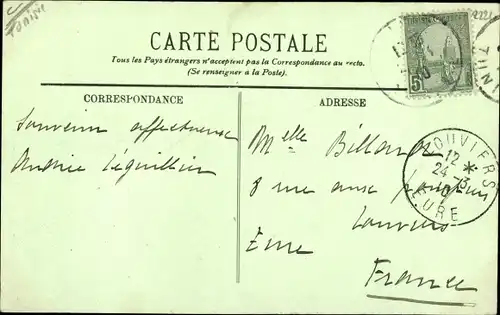 Tunisie
CARTE POSTALE
Tous les Pays étrangers n'acceptent pas la Correspondance au recto.
(Se renseigner à la Poste).
CORRESPONDANCE
ADRESSE
Souvenir affectueux
Melle
8 rue aux
Louviers
Eure
France
LOUVIERS
12 *
24-3
EURE
5